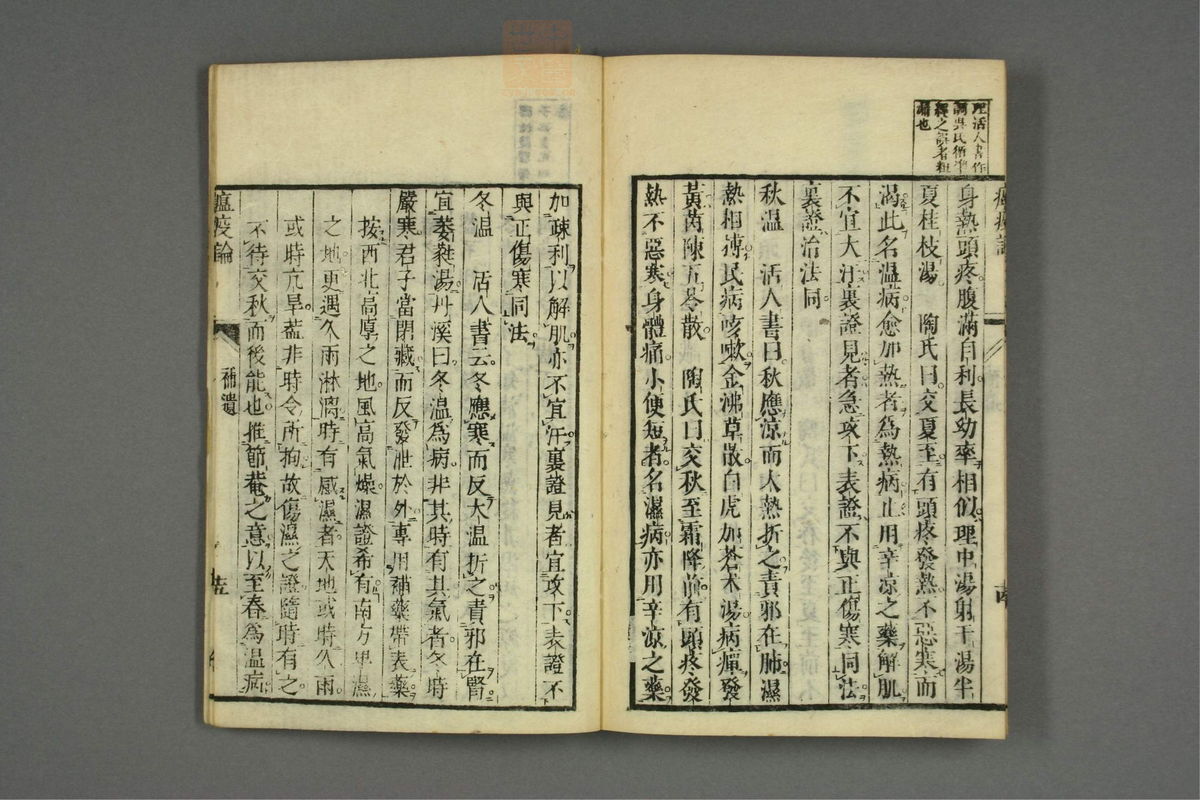 理活人書作
調吳氏循準
繩之誤者粗
漏也
身熱頭疼腹滿自利長幼率相似理中湯射干湯半
夏桂枝湯　陶氏曰交夏至有頭疼發熱不惡寒而
渴此名溫病愈加熱者爲熱病止用辛涼之藥解肌
不宜大汗裏證見者急攻下表證不與正傷寒同法
裏證治法同
秋溫　活人書曰秋應涼而大熱折之責邪在肺濕
熱相搏民病咳嗽金沸草散白虎加蒼朮湯病癉發
黃茵陳五苓散　陶氏曰交秋至霜降前有頭疼發
熱不惡寒身體痛小便短者名濕病亦用辛涼之藥
加疎利以解肌亦不宜汗裏證見者宜攻下表證不
與正傷寒同法
冬溫　活人書云冬應寒而反大溫折之責邪在腎
宜萎蕤湯丹溪曰冬溫爲病非其時有其氣者冬時
嚴寒君子當閉藏而反發泄於外專用補藥帶表藥
按西北高厚之地風高氣燥濕證希有南方卑濕
之地更遇久雨淋漓時有感濕者天地或時久雨
或時亢旱葢非時令所拘故傷濕之證隨時有之
不待交秋而後能也推節菴之意以至春爲溫病
瘟疫論
補遺